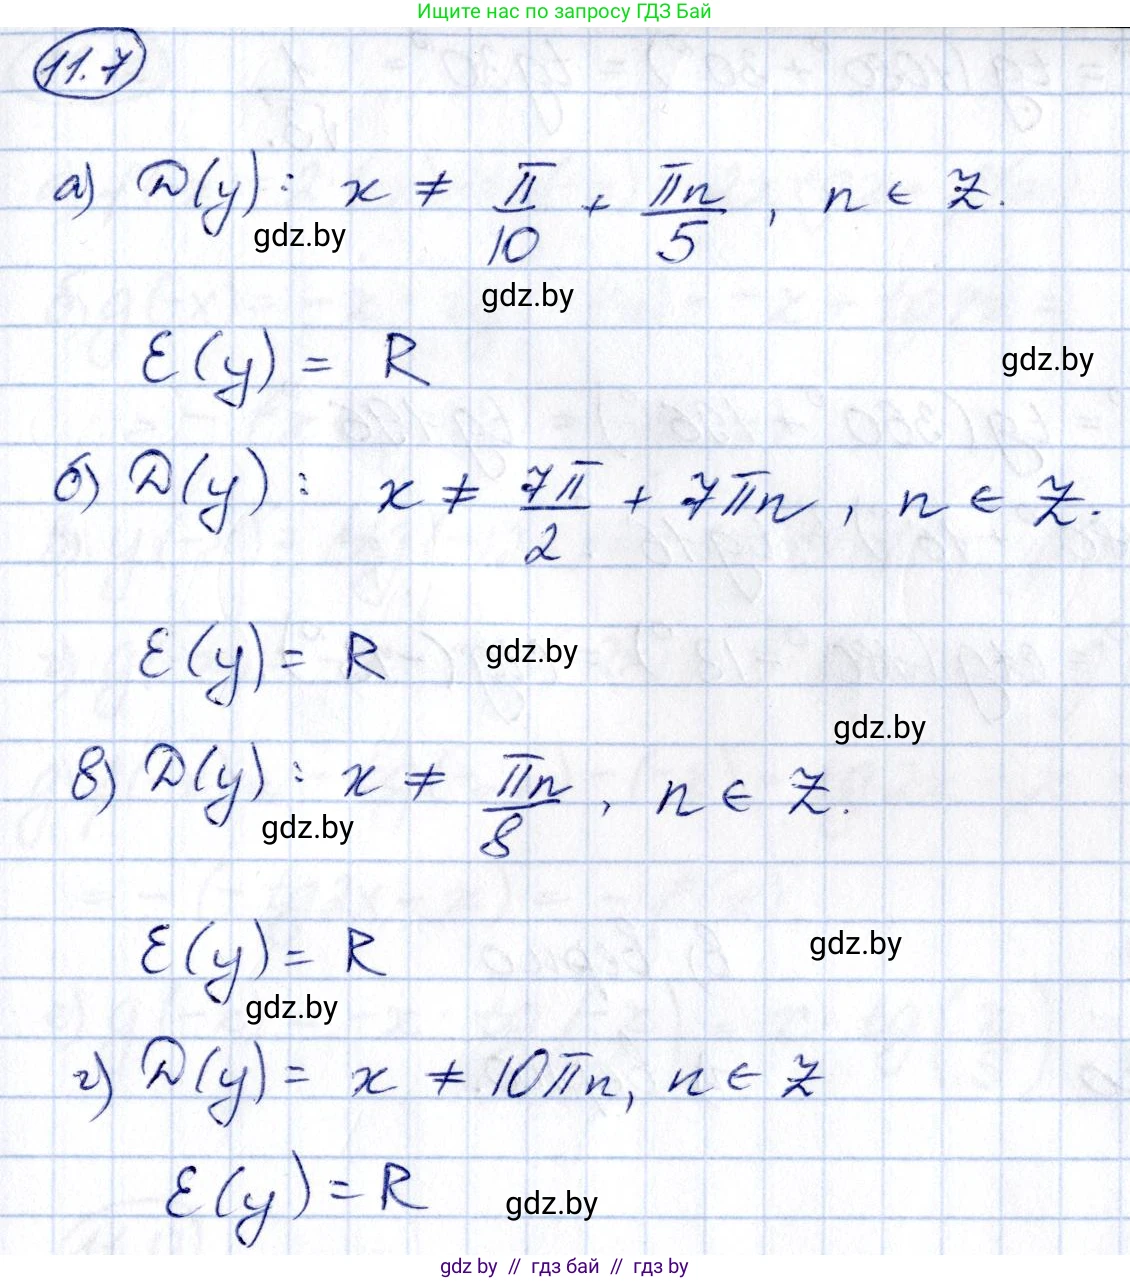 Ищите нас по запросу ГДЗ Бай
11.7
а) D(y): x ≠ π/10 + πn/5, n ∈ Z.
gdz.by
gdz.by
E(y) = R
gdz.by
б) D(y): x ≠ 7π/2 + 7πn, n ∈ Z.
E(y) = R
gdz.by
gdz.by
в) D(y): x ≠ πn/8, n ∈ Z.
gdz.by
E(y) = R
gdz.by
gdz.by
г) D(y) = x ≠ 10πn, n ∈ Z
E(y) = R
gdz.by
gdz by // гдз бай // гдз by